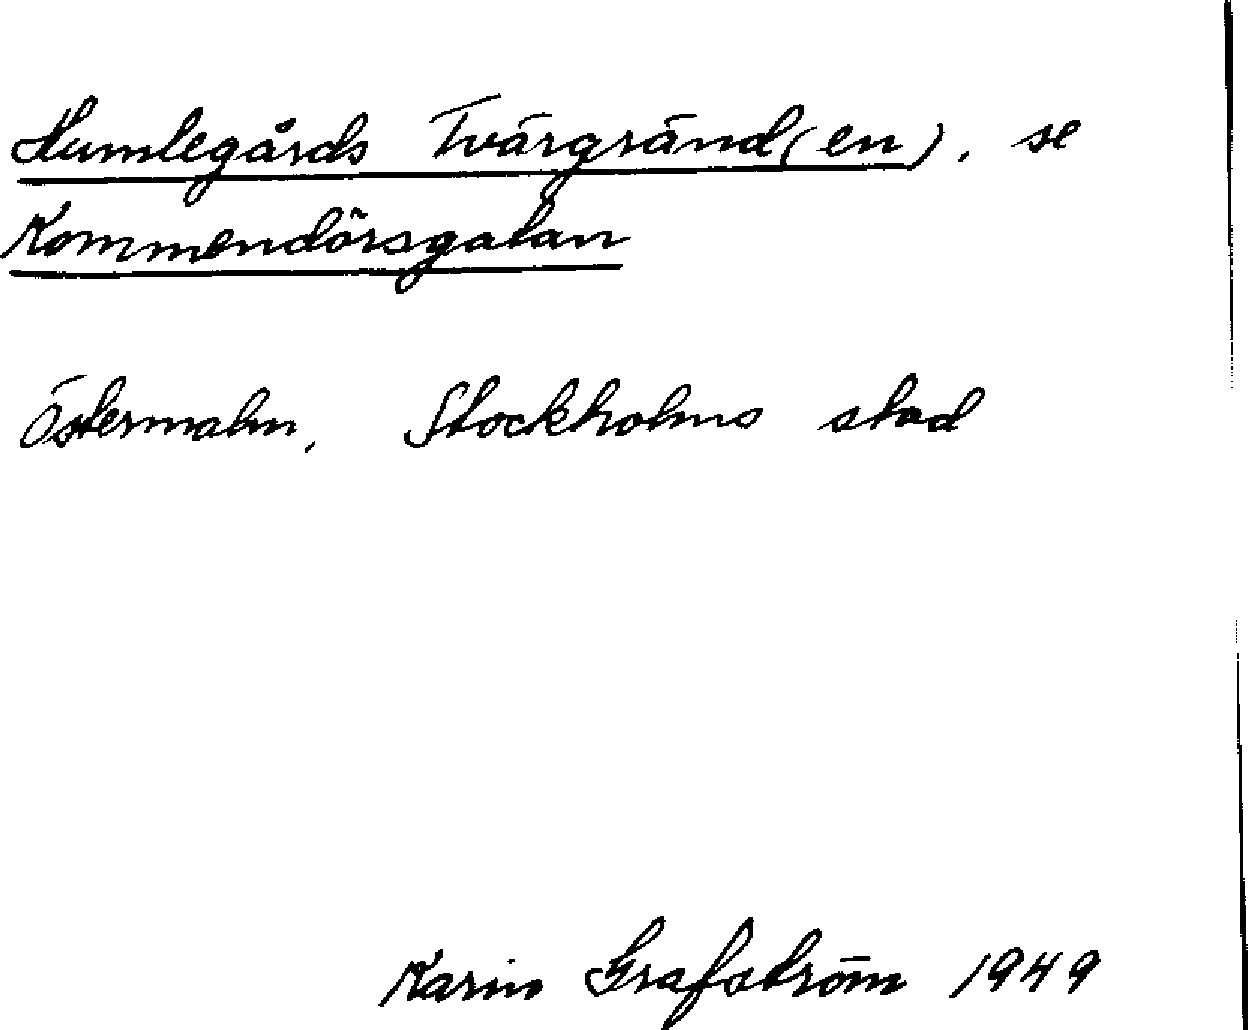 Humlegårds Tvärgränd(en), se
Kommendörsgatan
Östermalm, Stockholms stad
Karin Grafström 1949